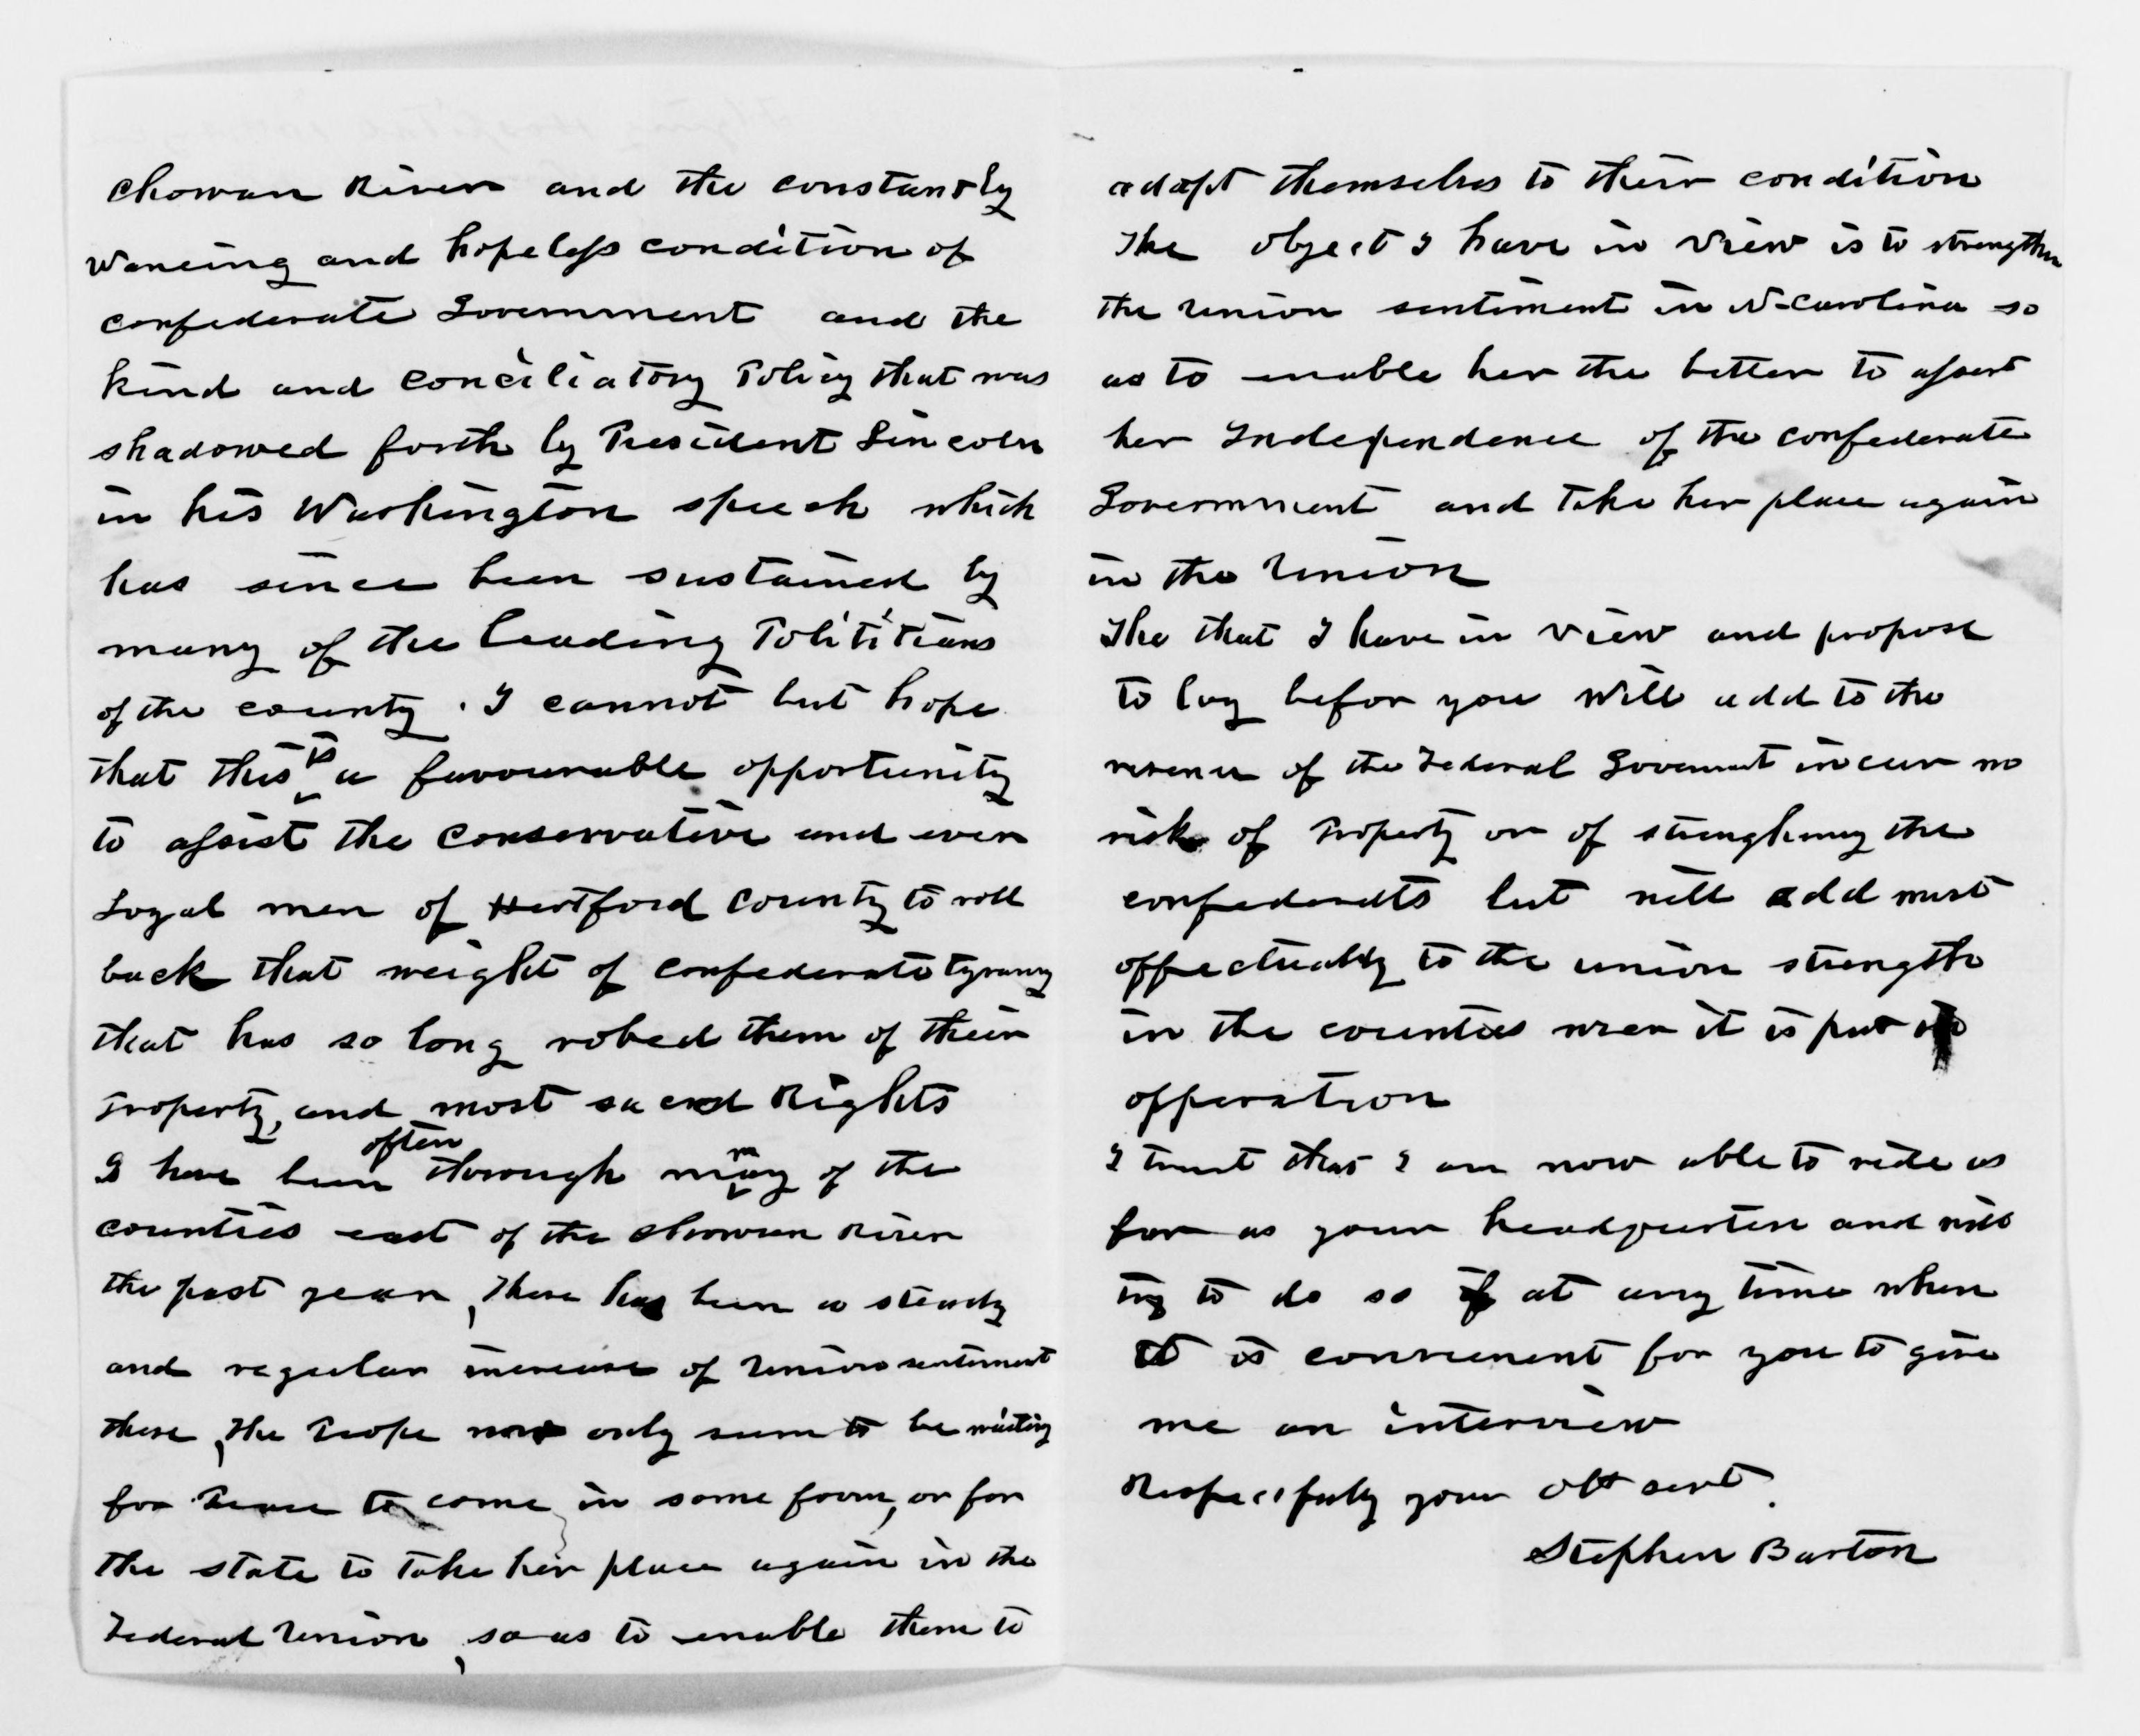 Chowan River and the constantly
Waneing and hopeless condition of
confederate Government and the
kind and conciliatory Policy that was
shadowed forth by President Lincoln
in his Washington speech which
has since been sustained by
many of the leading Polititians
of the county . I cannot but hope
that this is a favourable opportunity
to assist the conservative and even
Loyal men of Hertford County to roll
back that weight of confederate tyranny
that has so long robed them of their
Property, and most sacred Rights
I have been often thorough many of the
counties east of the Chowan River
the past year, there has been a steady
and regular increase of Union sentiment
there, the People now only seem to be waiting
for Peace to come in some form, or for
the state to take her place again in the
Federal Union, so as to enable them to
adapt themselves to their condition
The object I have in view is to strengthen
the Union sentiment in N-Carolina so
as to enable her the better to assert
her Independence of the confederate
Government and take her place again
in the Union
The that I have in view and propose
to lay befor you will add to the
revenue of the Federal Goverment incur no
risk of Property or of strenghening the
confederats but will add most
effectually to the union strength
in the counties wher it is put
opperation
I trust that I am now able to ride as
far as your headquarters and will
try to do so at any time when
it is convenient for you to give
me an interview
Respectfuly your Obt servt.
Stephen Barton